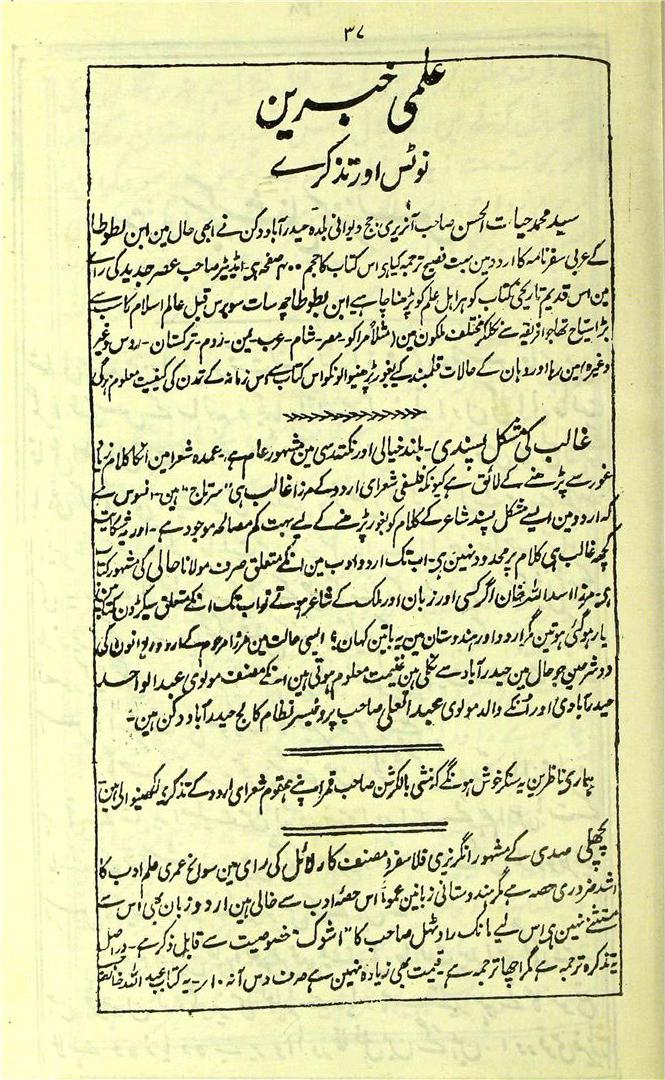 ۳۷
علمی خبرین
نوٹس اور تذکرے
سید محمد حیات الحسن صاحب آنریری جج دیوانی بلدہ حیدرآباد دکن نے ابھی حال مین ابن بطوطا
کے عربی سفرنامہ کا اردو مین بہت فصیح ترجمہ کیا ہی اس کتاب کا حجم ۴۰۰ صفحہ ہی۔ اڈیٹر صاحب عصر جدید کی رائے
مین اس قدیم تاریخی کتاب کو ہر اہل علم کو پڑھنا چاہیے ابن بطوطا چہ سات سو برس قبل عالم اسلام کا سب سے
بڑا سیاح تھا جو افریقہ سے نکلکر مختلف ملکون مین (مثلاً مراکو۔ مصر۔ شام۔ عرب۔ یمن۔ روم۔ ترکستان۔ روس وغیر
وغیرہ) مین رہا اور وہان کے حالات قلمبند کیے بغور پڑہنیوالونکو اس کتاب سے اس زمانہ کے تمدن کی کیفیت معلوم ہوگی
غالب کی مشکل پسندی۔ بلند خیالی اور نکتہ رسی مین مشہور عام ہے، عمدہ شعرا مین انکا کلام
غور سے پڑھنے کے لائق ہے کیونکہ فلسفی شعرای اردو کے مرزا غالب ہی "سرتاج" ہین۔ افسوس ہے
کہ اردو مین ایسے مشکل پسند شاعر کے کلام کو بغور پڑھنے کے لیے بہت کم مصالحہ موجود ہے۔ اور یہ شکایت
کچھ غالب ہی کلام پر محدود نہین ہی۔ اب تک اردو ادب مین انکے متعلق صرف مولانا حالی کی مشہور کتاب
ہی۔ مرزا اسد اللہ خان اگر کسی اور زبان اور ملک کے شاعر ہوتے تو اب تک انکے متعلق سیکڑون کتابین
یار ہوگئی ہوتین مگر اردو اور ہندوستان مین یہ باتین کہان؟ ایسی حالت مین مرزا مرحوم کے اردو دیوانون کی
دو شرحین جو حال مین حیدرآباد سے نکلی ہین غنیمت معلوم ہوتی ہین انکے مصنف مولوی عبدالواحد
حیدرآبادی اور اُنکے والد مولوی عبدالعلی صاحب پروفیسر نظام کالج حیدرآباد دکن ہین۔
ہماری ناظرین یہ سنکر خوش ہونگے کہ منشی بالکرشن صاحب قمر اپنے ہمقوم شعرای اردو کے تذکری لکھنیوالی ہین
پچھلی صدی کے مشہور انگریزی فلاسفر و مصنف کارلائل کی رای مین سوانح عمری علم ادب کا
اشد ضروری حصہ ہے مگر ہندوستانی زبانین عموماً اس حصّہ ادب سے خالی ہین اردو زبان بھی اس سے
مستثنے نہین ہی اس لیے مانک راؤ ٹھل صاحب کا "اشوک" خصوصیت سے قابل ذکر ہے۔ دراصل
یہ تذکرہ ترجمہ ہے مگر اچھا ترجمہ ہے۔ قیمت بھی زیادہ نہین ہے صرف دس آنہ ۱۰؍۔ یہ کتاب عبد اللہ خان